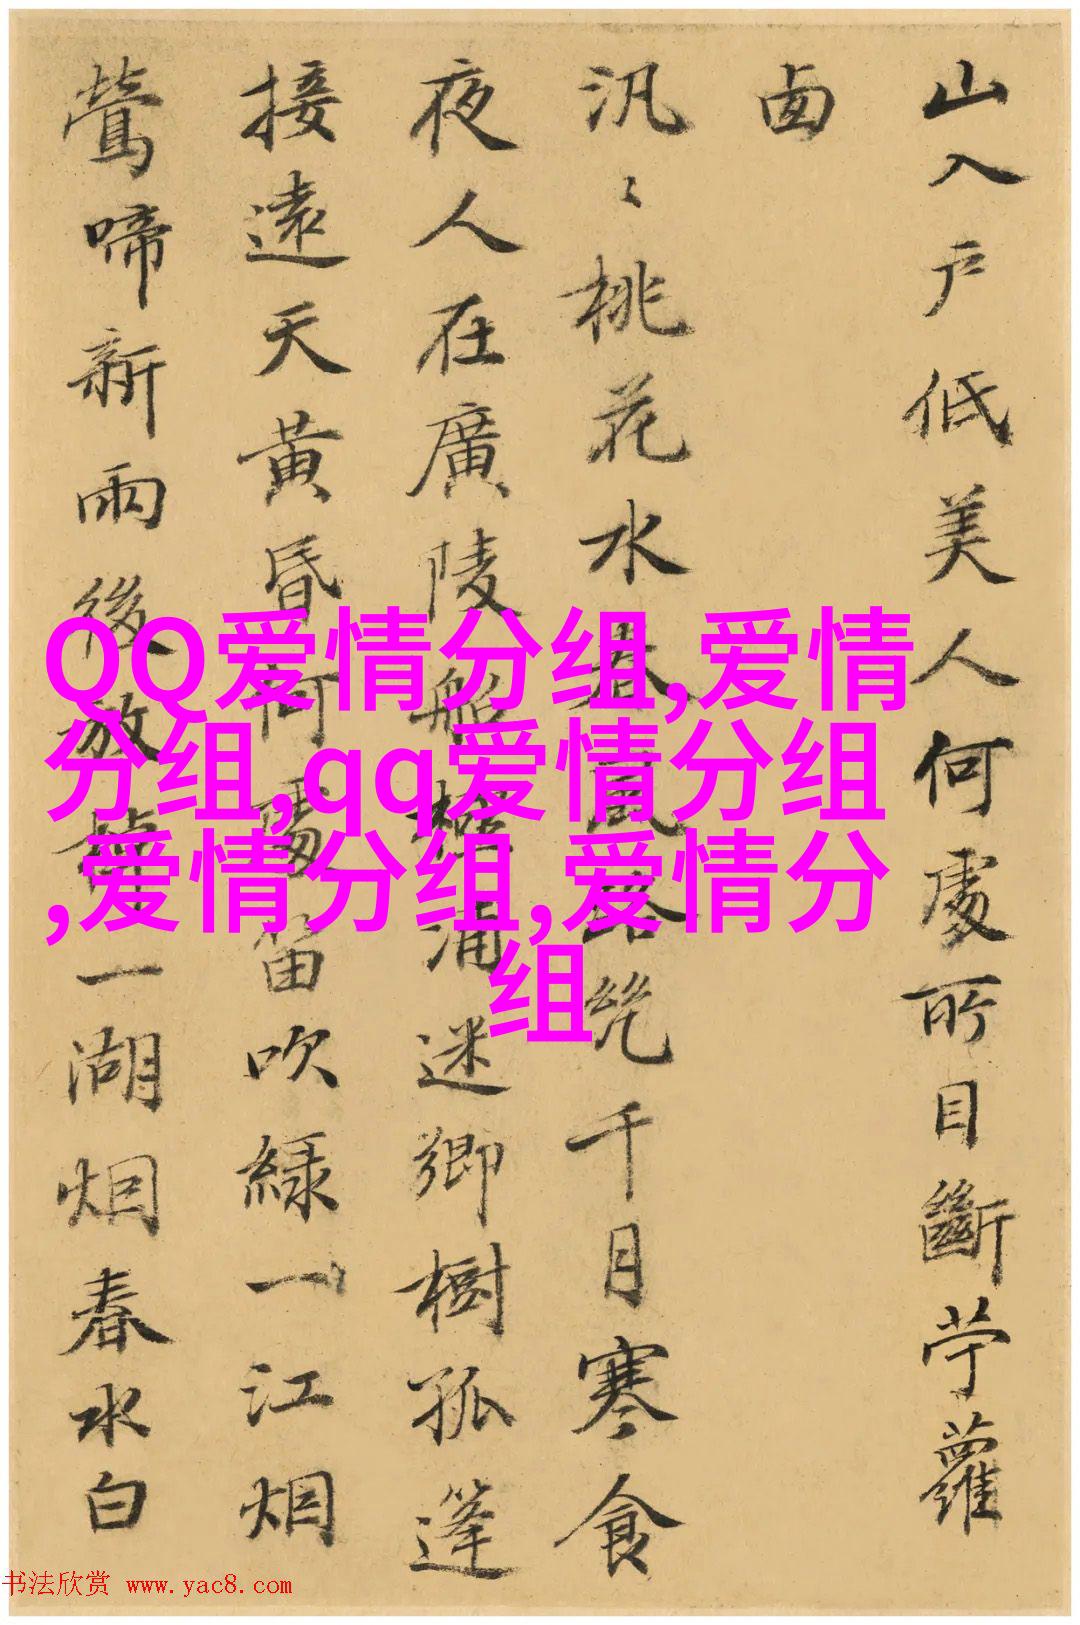 山入户低美人何處所目斷苧蘿
西
汎〻桃花水春風路绝千月寒食
夜人在廣陵船極浦迷鄉樹孤篷
接遠天黄昏何處笛吹緑一江烟
鶯啼新雨後放棹一湖烟春水白
QQ爱情分组,爱情
分组,qq爱情分组
,爱情分组,爱情分
组
书法欣赏 www.yac8.com